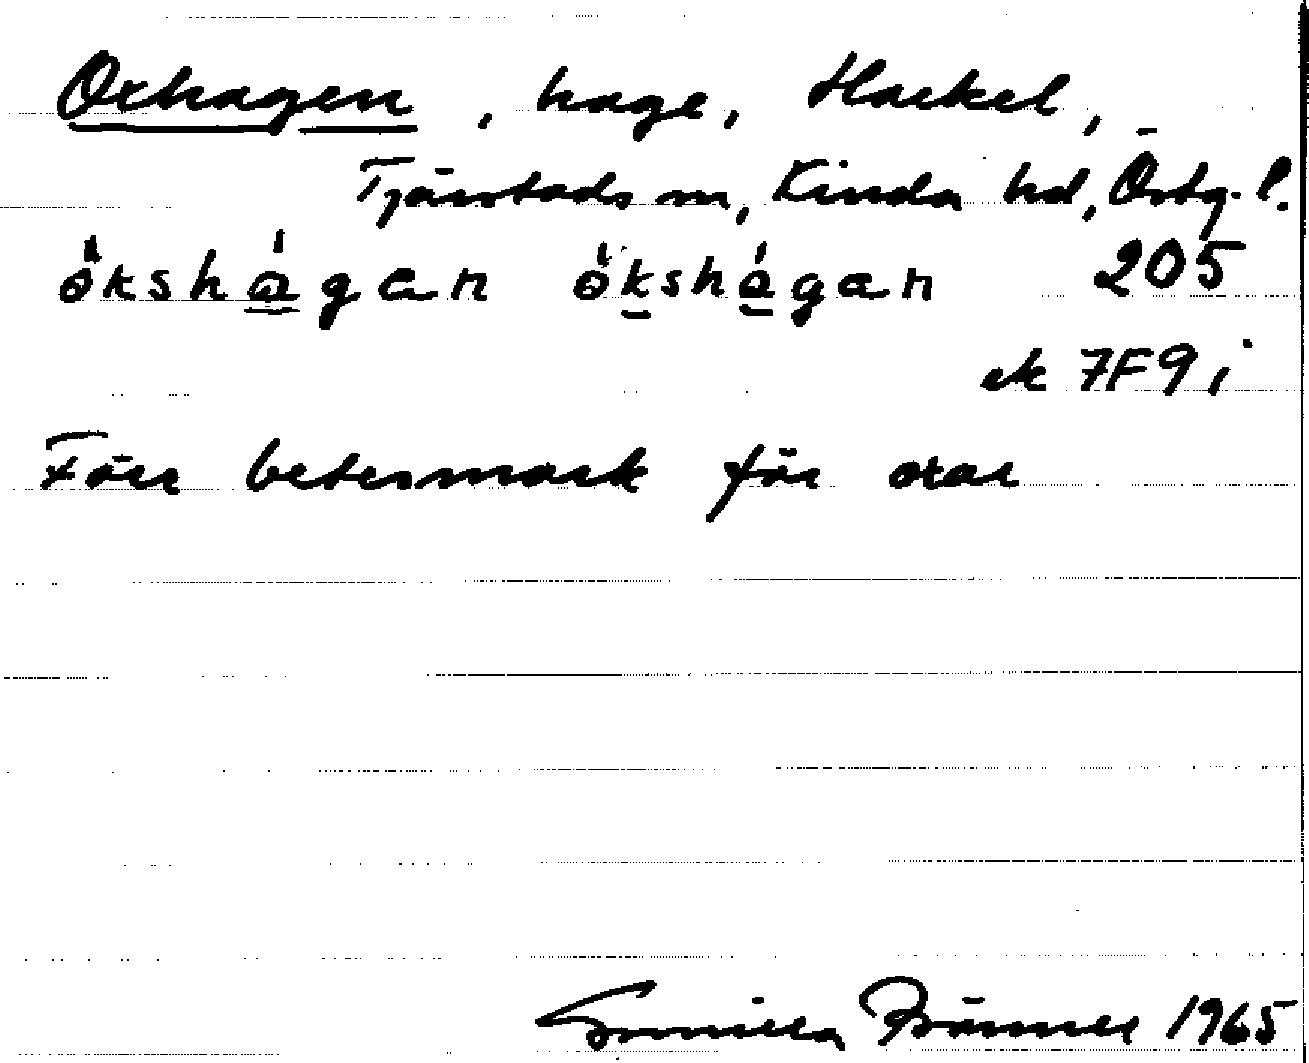 Oxhagen, hage, Hackel,
Tjärstads sn, Kinda hd, Östg. l.
ökshagan ökshagan 205
ek 7F9i
Förr betesmark för oxar
Gunilla 1965